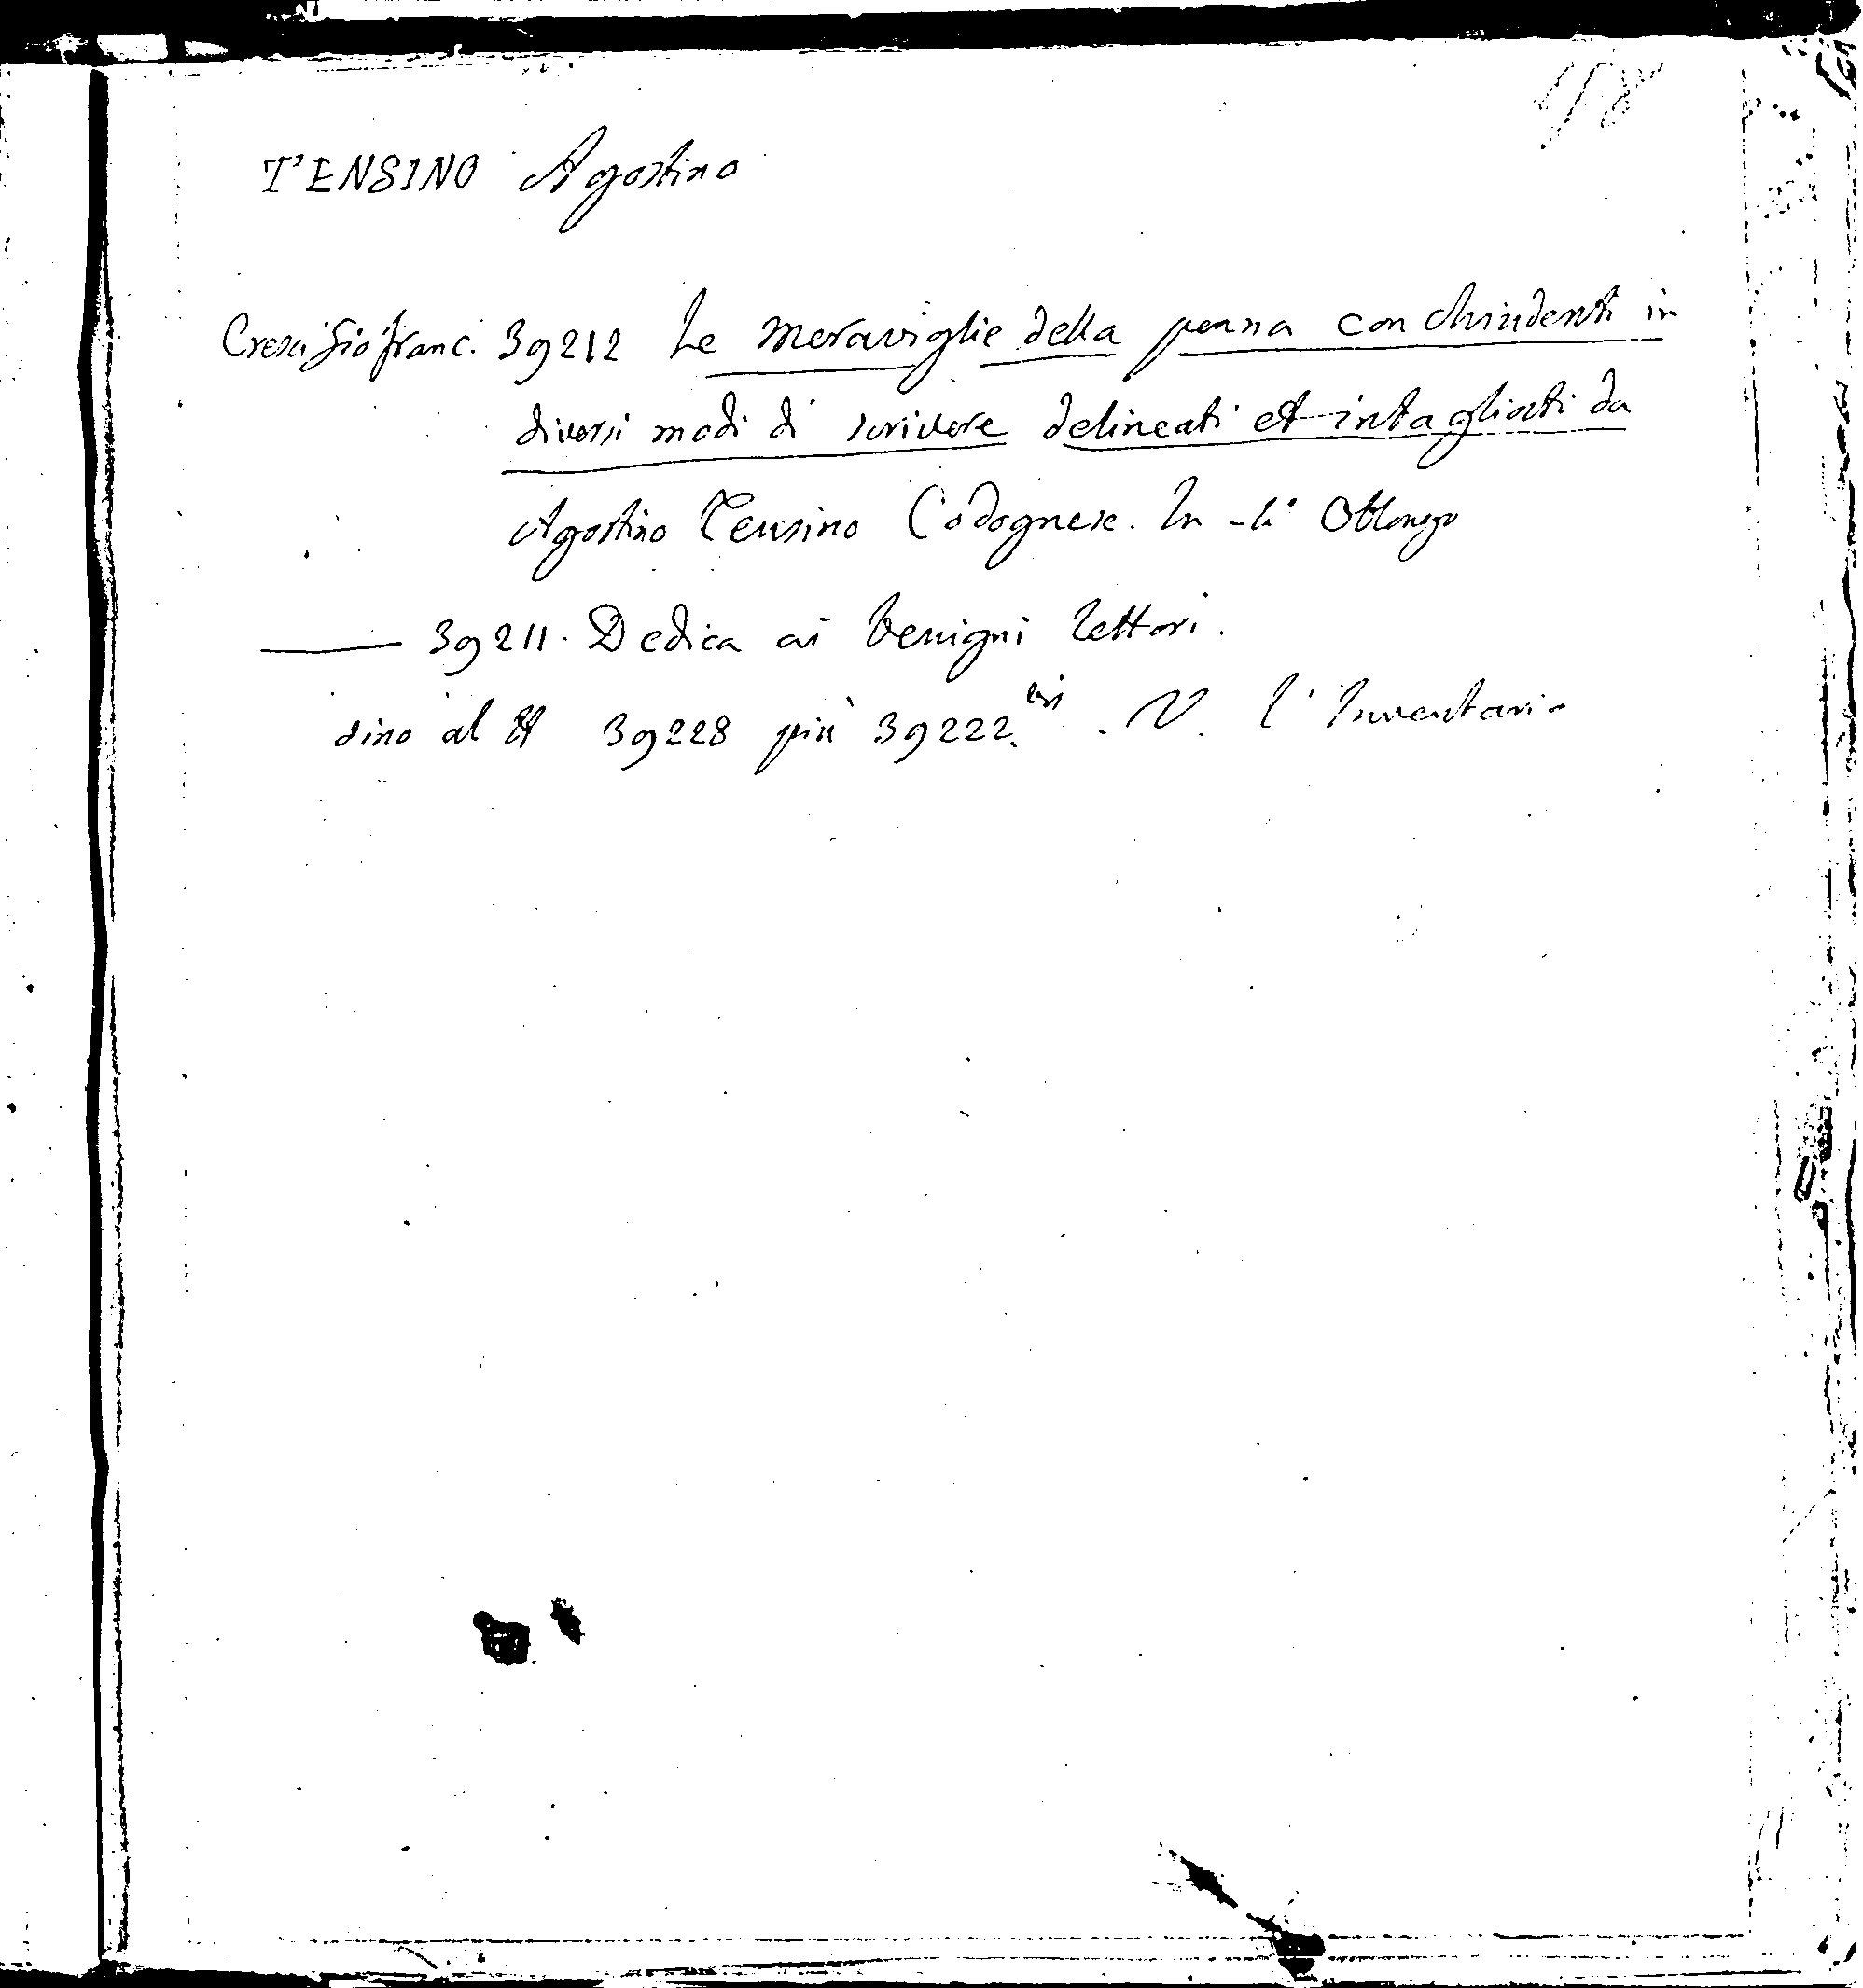 TENSINO Agostino
Cresci Giofranc. 39212 Le meraviglie della penna conchiudenti in
diversi modi di scrivere delineati et intagliati da
Agostino Tensino Codognese. In -4° Oblongo
—— 39211. Dedica ai benigni lettori.
sino al N 39228 più 39222 bis. V. l'Inventario